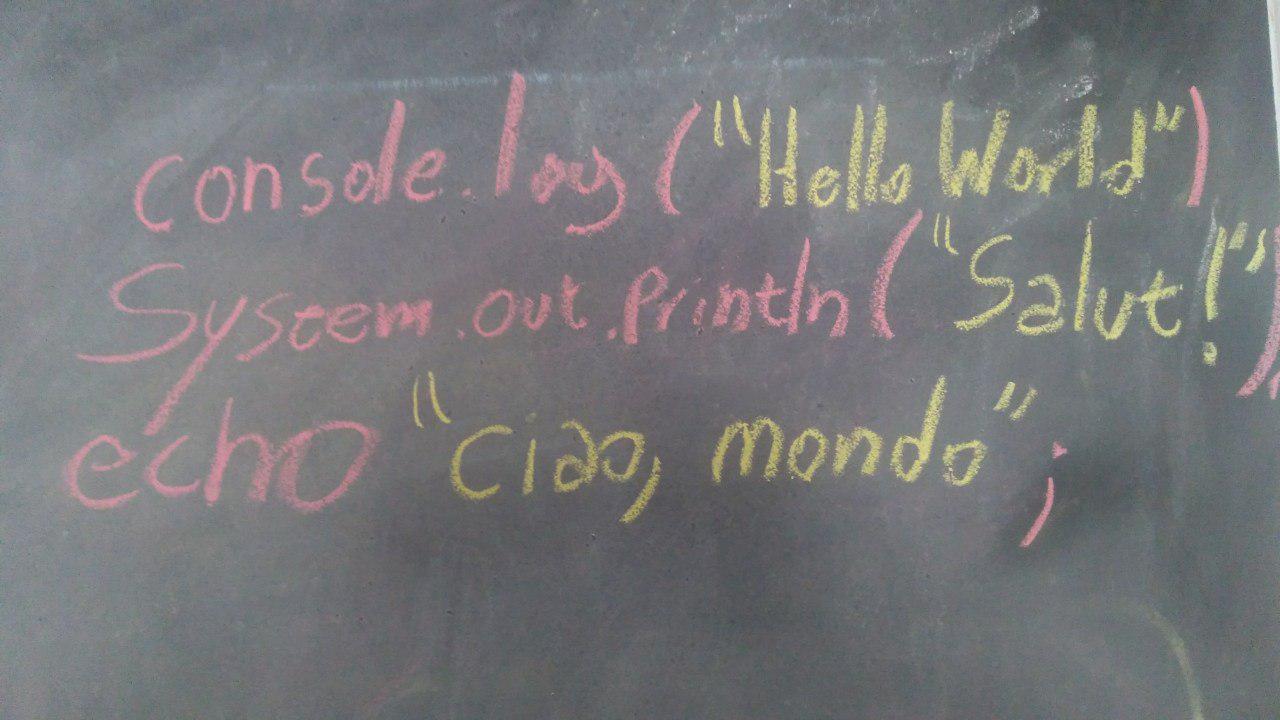 console.log("Hello World")
System.out.println("Salut!");
echo "Ciao, mondo";